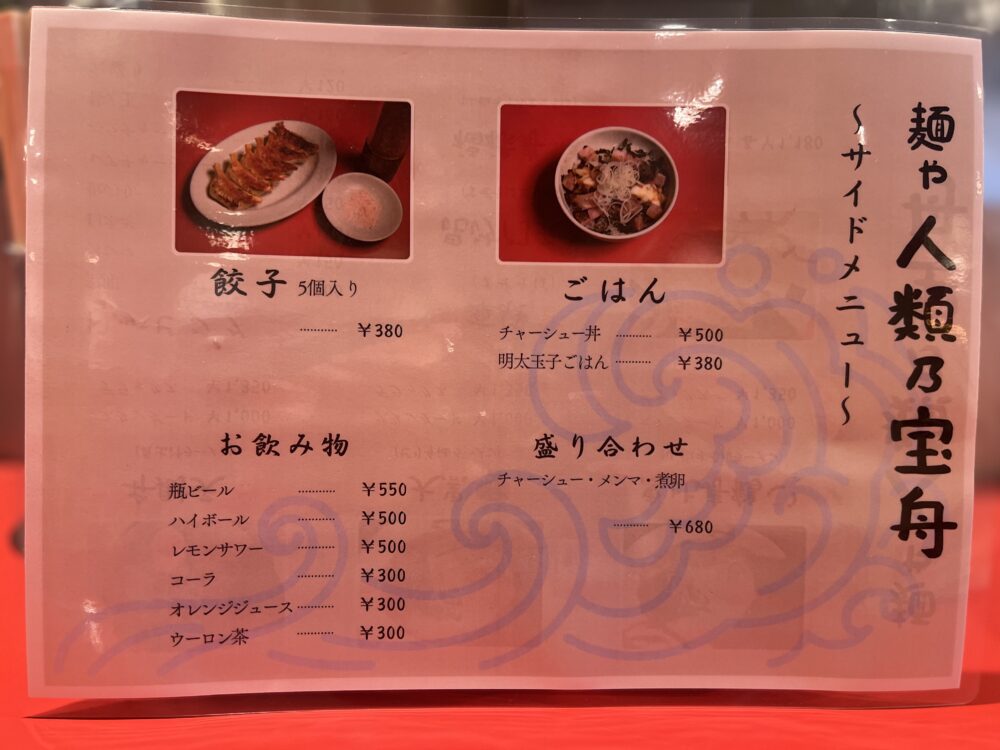 麺や 人類乃宝舟
～サイドメニュー～
餃子 5個入り
………… ￥380
ごはん
チャーシュー丼 ………… ￥500
明太玉子ごはん ………… ￥380
お飲み物
瓶ビール ………… ￥550
ハイボール ………… ￥500
レモンサワー ………… ￥500
コーラ ………… ￥300
オレンジジュース ………… ￥300
ウーロン茶 ………… ￥300
盛り合わせ
チャーシュー・メンマ・煮卵
………… ￥680